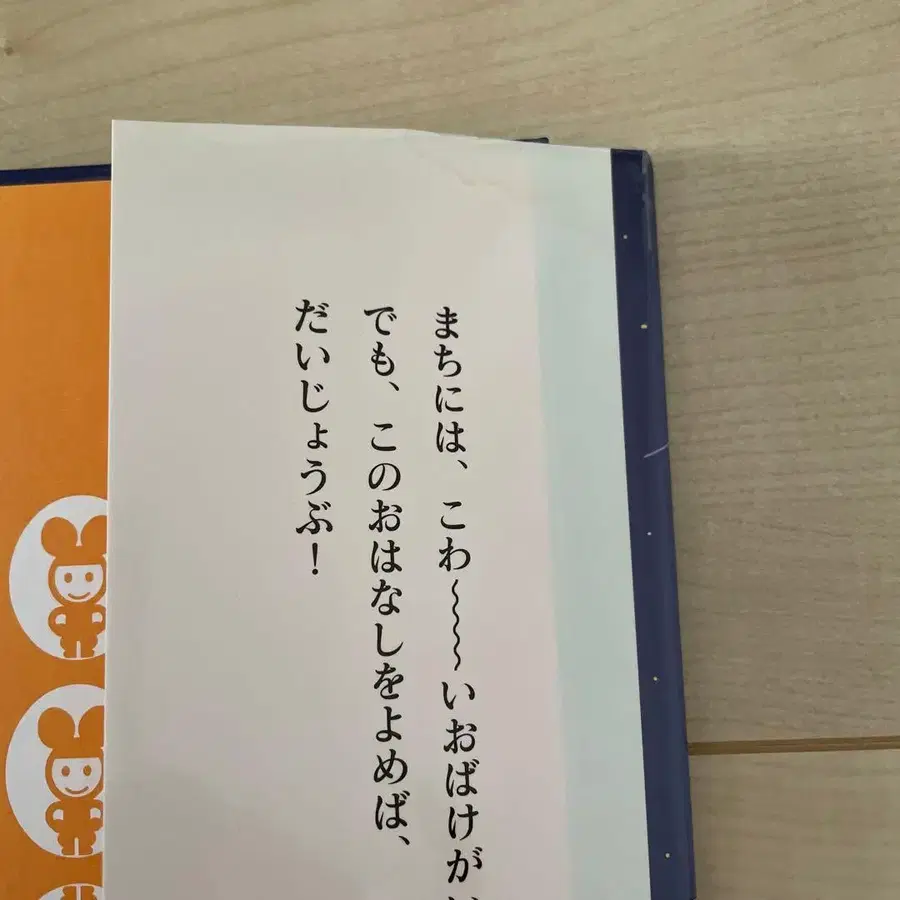 まちには、こわ〜〜〜〜いおばけが
でも、このおはなしをよめば、
だいじょうぶ！